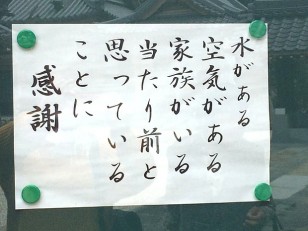 水がある
空気がある
家族がいる
当たり前と
思っている
ことに
感謝